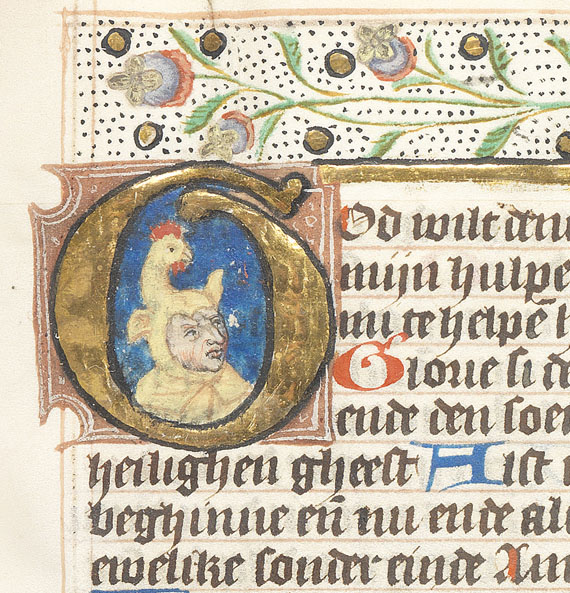 God wilt den
mijn hulpe
mi te helpē
Glorie si d
ende den soe
heilighen gheest Alst
beghinne en̄ nu ende al
ewelike sonder einde Am